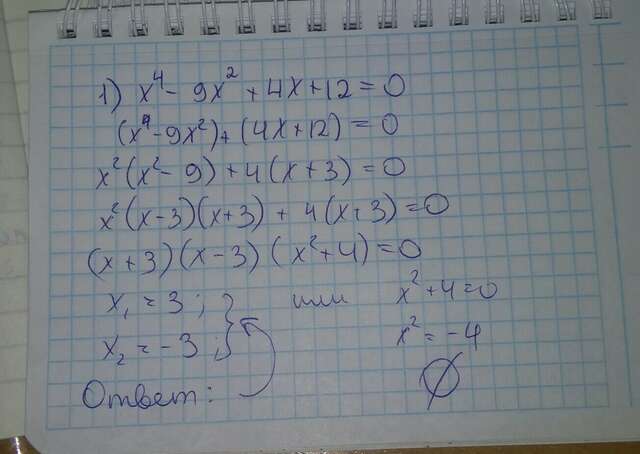 1) x⁴ - 9x² + 4x + 12 = 0
(x⁴ - 9x²) + (4x + 12) = 0
x²(x² - 9) + 4(x + 3) = 0
x²(x - 3)(x + 3) + 4(x + 3) = 0
(x + 3)(x - 3)(x² + 4) = 0
x₁ = 3 ; или x² + 4 = 0
x₂ = -3 ; x² = -4
Ответ: ∅